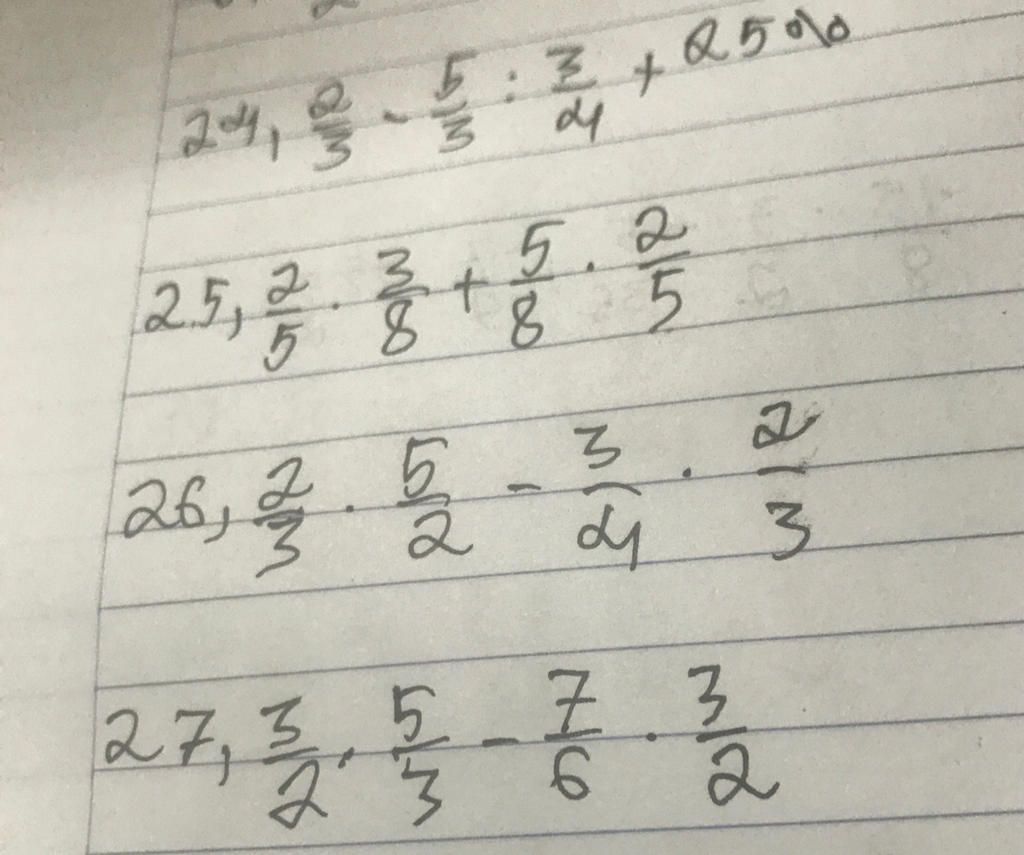 24, 2/3 - 5/3 : 3/4 + 25%
25, 2/5 · 3/8 + 5/8 · 2/5
26, 2/3 · 5/2 - 3/4 · 2/3
27, 3/2 · 5/3 - 7/6 · 3/2